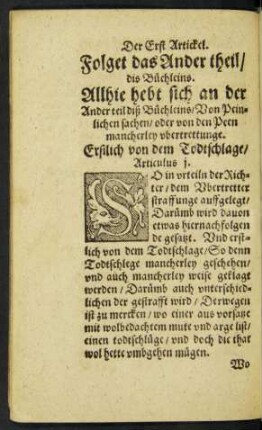 Der Erst Artickel.
Folget das Ander theil/
dis Büchleins.
Allhie hebt sich an der
Ander teil diß Büchleins/Von Pein-
lichen sachen/oder von den Peen
mancherley vbertrettunge.
Erstlich von dem Todtschlage/
Articulus j.
SO in vrteiln der Rich-
ter/dem Vbertretter
straffunge auffgelegt/
Darümb wird dauon
etwas hiernachfolgen
de gesatzt. Vnd erst-
lich von dem Todtschlage/So denn
Todtschlege mancherley geschehen/
vnd auch mancherley weise geklagt
werden/Darümb auch vnterschied-
lichen der gestrafft wird/Derwegen
ist zu mercken/wo einer aus vorsatze
mit wolbedachtem mute vnd arge list/
einen todtschlüge/vnd doch die that
wol hette vmbgehen mügen.
Wo